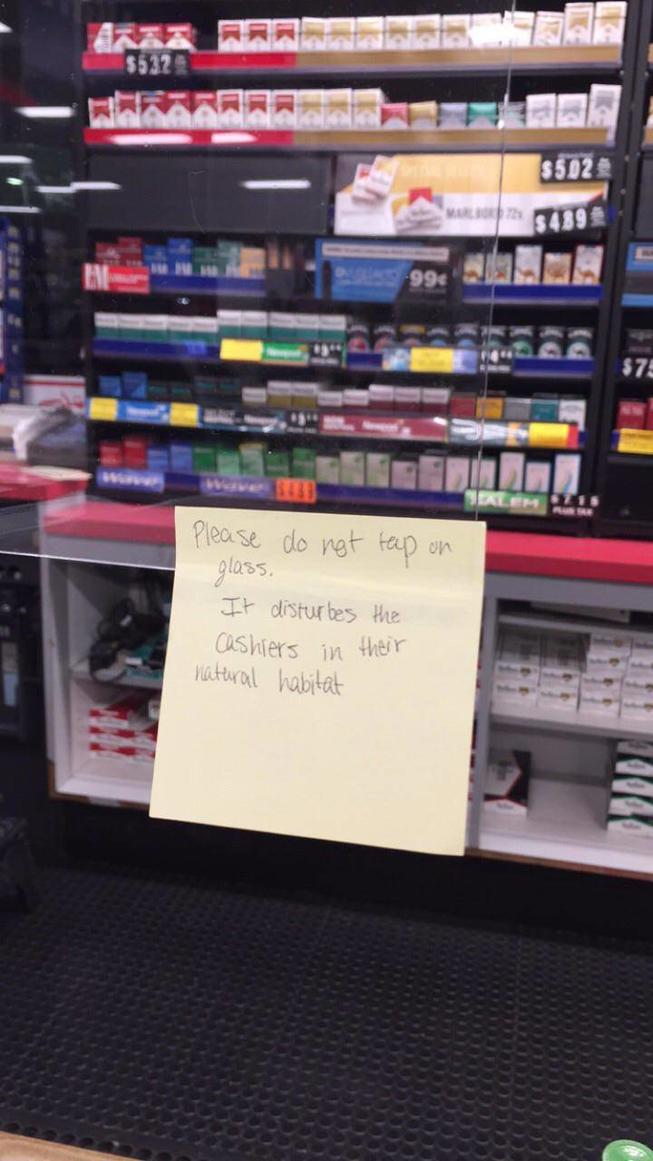 $5.32
$5.02
SPECIAL SELECT
MARLBORO 72s
$4.89
L&M
99¢
Newport
Newport
Newport
Wave
Wave
$4.89
SALEM
PLUS TAX
Please do not tap on
glass.
It disturbes the
cashiers in their
natural habitat